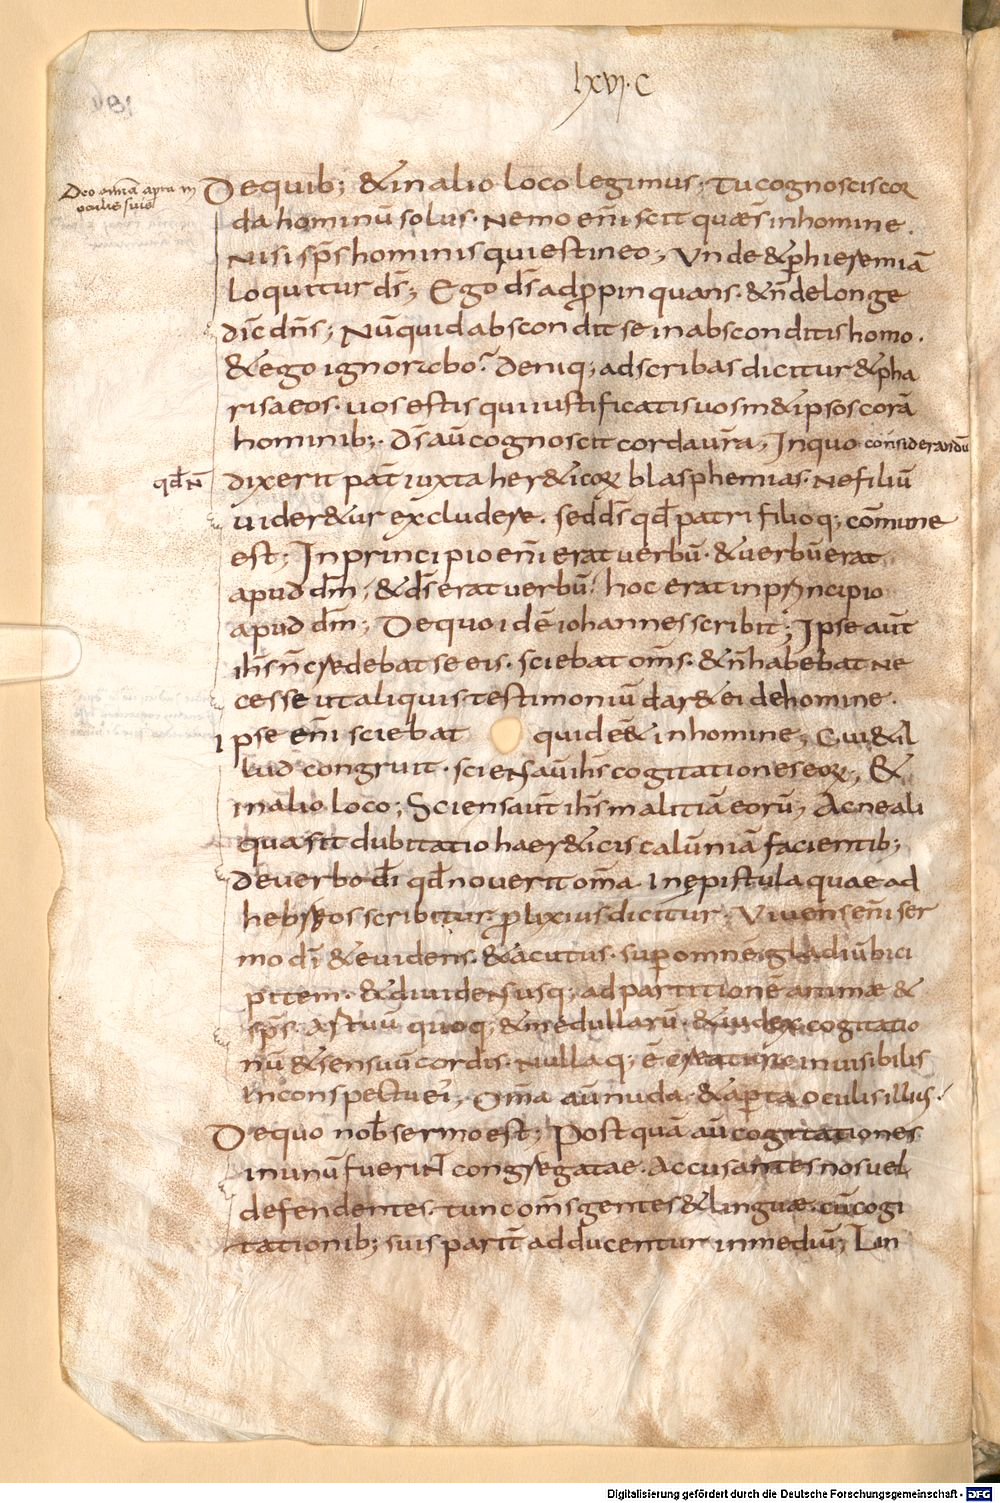 lxvj. C
Deo om̄ia apta in
oculis suis
Dequib; &inalio loco legimus; Tu cognoscis cor
da hominū solus. Nemo eni̅ scit quae s̄ inhomine.
Nisi sps̄ hominis qui est ineo; Unde & phieremiā
loquitur ds̄; Ego ds̄ adppinquans. & n̄ delonge
dic̄ dns̄; Nūquid abscondit se inabsconditis homo.
& ego ignorabo? Deniq; adscribas dicitur & pha
risaeos. uos estis qui iustificatis uosm& ipsos corā
hominib;. Ds̄ aū cognoscit corda ur̄a; Inquo considerandū
qd̄ N̄
dixerit pat̄ iuxta her&icor blasphemias. Ne filiū
uider&ur excludere. sed ds̄ qd̄ patri filioq; cōmune
est; Inprincipio eni̅ erat uerbū. & uerbū erat
apud dm̄; & ds̄ erat uerbū. hoc erat inprincipio
apud dm̄; Dequo idē iohannes scribit; Ipse aut̄
ihs̄ n̄ credebat se eis. sciebat om̄s. & n̄ habebat ne
cesse ut aliquis testimoniū dar& ei dehomine.
ipse eni̅ sciebat quid eē& inhomine; Cui & il
lud congruit. sciens aū ihs̄ cogitationes eor; &
inalio loco; Sciens aut̄ ihs̄ malitiā eorū; Ac ne ali
qua sit dubitatio haer&icis calūniā facientib;
deuerbo di̅ qd̄ nouerit om̄a. Inepistula quae ad
hebreos scribitur plixius dicitur. Viuens eni̅ ser
mo di̅ & euidens. & acutus. sup omnē gladiū bici
pitem. & diuidens usq; adpartitionē animae &
sps̄. Astuū quoq; & medullarū. & iudex cogitatio
nū & sensuū cordis. Nullaq; ē creatura inuisibilis
inconspectu ei'; Om̄a aū nuda. & apta oculis illius.
Dequo nob̄ sermo est; Post quā aū cogitationes
inunū fuerint congregatae. Accusantes nos uel
defendentes. tunc om̄s gentes & linguae. cū cogi
tationib; suis parit̄ adducentur inmediū; Lin
Digitalisierung gefördert durch die Deutsche Forschungsgemeinschaft - DFG